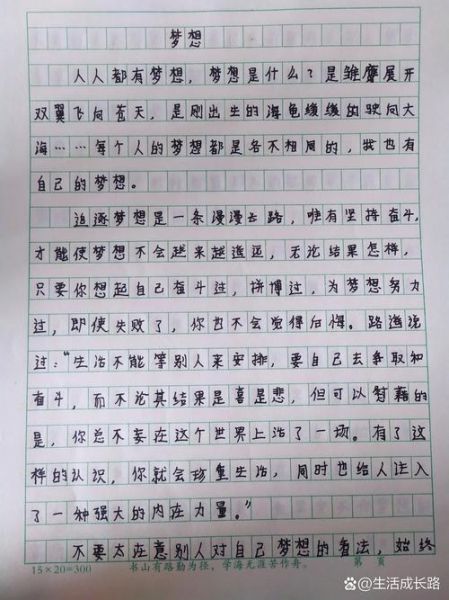 梦想
人人都有梦想，梦想是什么？是雏鹰展开
双翼飞向苍天，是刚出生的海龟缓缓的驶向大
海……每个人的梦想都是各不相同的，我也有
自己的梦想。
追逐梦想是一条漫漫长路，唯有坚持奋斗，
才能使梦想不会越来越遥远，无论结果怎样，
只要你想起自己奋斗过，拼博过，为梦想努力
过，即使失败了，你也不会觉得后悔。路遥说
过：“生活不能等别人来安排，要自己去争取和
奋斗，而不论其结果是喜是悲，但可以慰藉的
是，你总不妄在这个世界上活了一场。有了这
样的认识，你就会珍重生活，同时也给人注入
了一种强大的内在力量。”
不要太在意别人对自己梦想的看法，始终
15×20=300 书山有路勤为径，学海无涯苦作舟。 第 页
@生活成长路